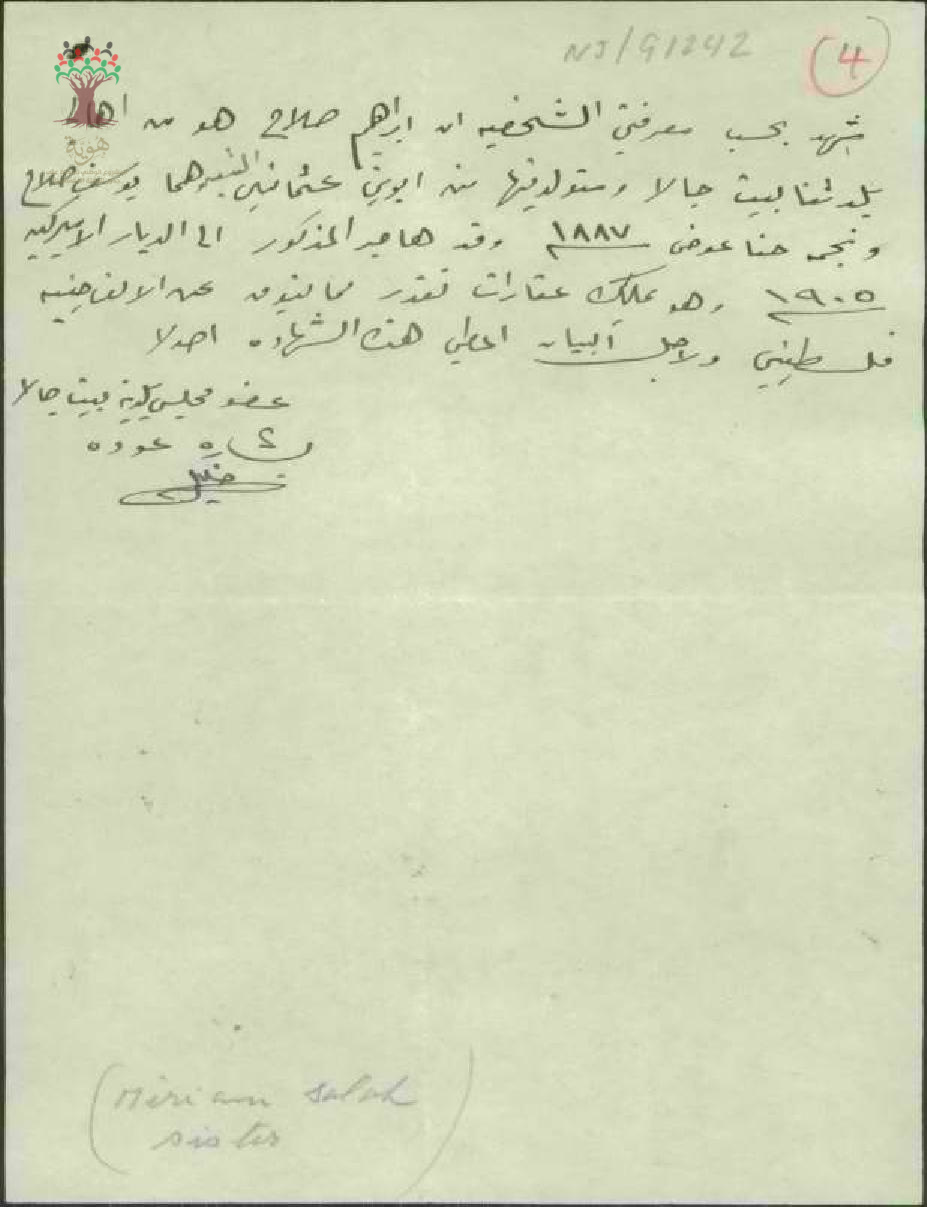 NJ/91242
(4)
هوية
اشهد بحسب معرفتي الشخصيه ان ابراهيم صلاح هو من اهالي
بلدتنا بيت جالا ومتولد فيها من ابوين عثمانيي التبعيه هما يوسف صلاح
ونجمه حنا عوض ١٨٨٧ وقد هاجر المذكور الى الديار الاميركيه
١٩٠٥ وهو يملك عقارات تقدر مما يفوق عن الالف جنيه
فلسطيني ولاجل البيان اعطي هذه الشهاده اصولا
عضو مجلس بلدية بيت جالا
بشاره عوده
(Miriam Salah
sister)